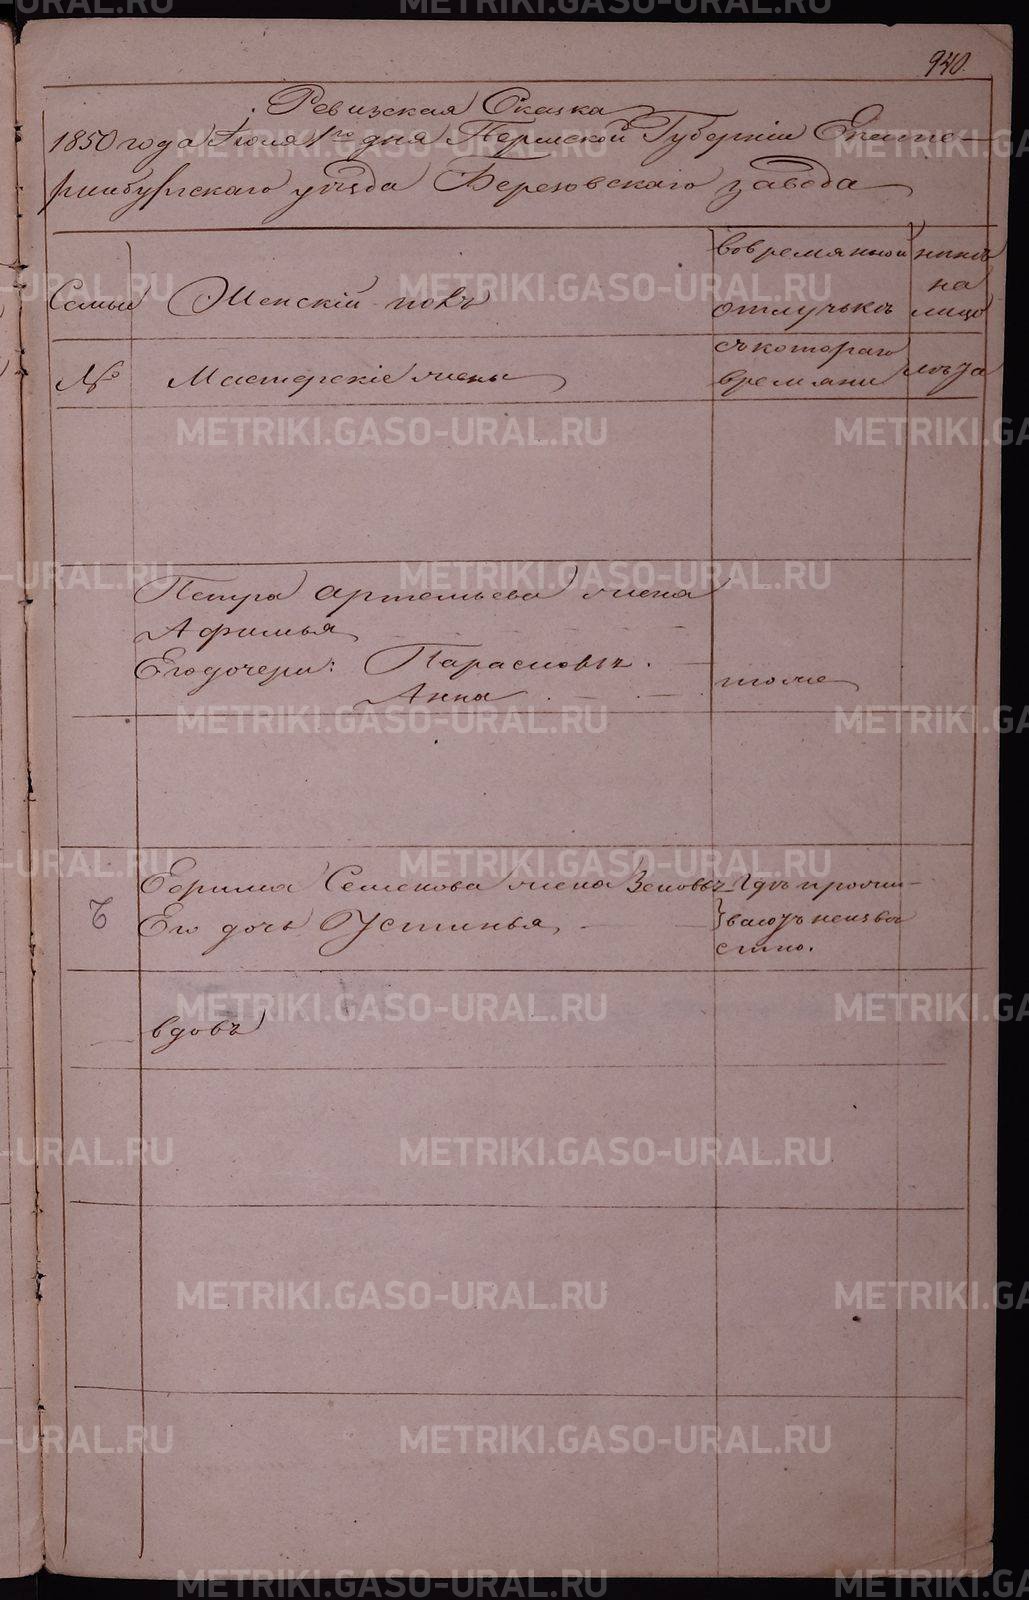 940.
Ревизская Сказка
1850 года Июля 1го дня Пермской Губернiи Екате-
ринбургскаго уѣзда Березовскаго завода
Семьи
Женскiй полъ
во времянной
отлучькѣ
нынѣ
на
лицо
№
Мастерскiе жены
съ котораго
времяни
лѣта
Петра Артемьева жена
Афимья
Его дочери: Парасковья.
Анна
тоже
Ефима Семенова жена Зеновья
Его дочь Устинья
Гдѣ прожи-
ваютъ неизвѣ
стно.
вдовѣ
METRIKI.GASO-URAL.RU